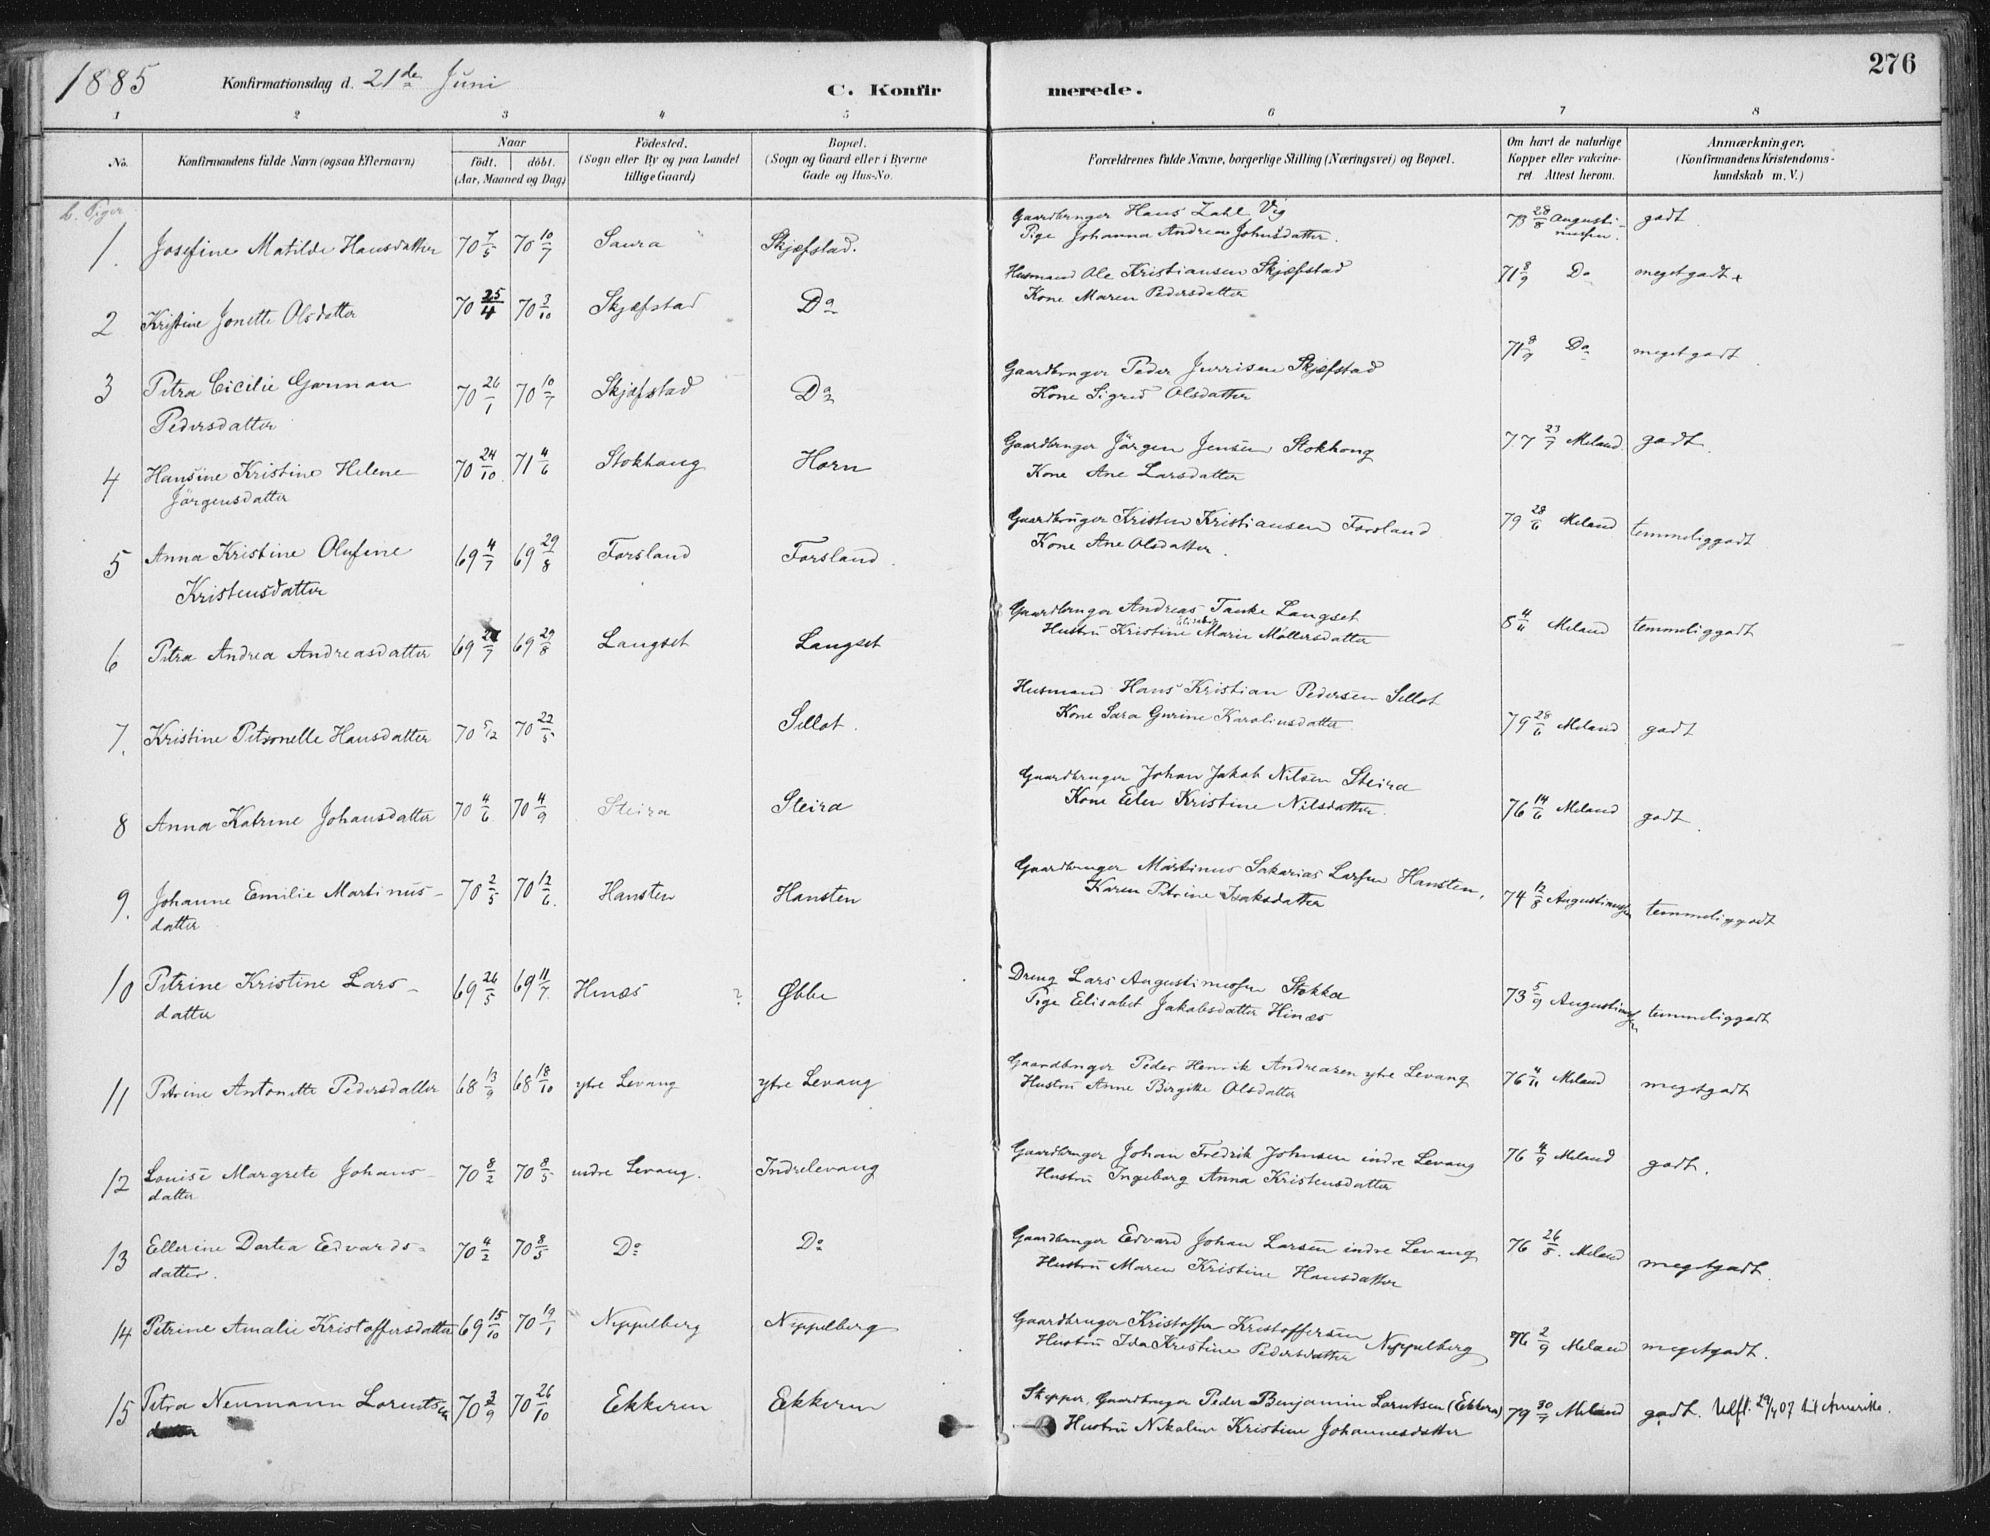 1885 Konfirmationsdag d. 21de Juni C. Konfir merede. 276
1 2 3 4 5 6 7 8
No. Konfirmandens fulde Navn (ogsaa Efternavn) Naar födt. döbt. (Aar, Maaned og Dag) Födested. (Sogn eller By og paa Landet tillige Gaard) Bopæl. (Sogn og Gaard eller i Byerne Gade og Hus-No. Forældrenes fulde Navne, borgerlige Stilling (Næringsvei) og Bopæl. Om havt de naturlige Kopper eller vakcineret. Attest herom. Anmærkninger. (Konfirmandens Kristendomskundskab m. V.)
b. Piger
1. Josefine Matilde Hansdatter 70 7/5 70 10/7 Saura Skjæfstad. Gaardbruger Hans Zahl Vig 73 28/8 Augustinussen. godt
Pige Johanna Andrea Johnsdatter.
2 Kristine Jonette Olsdatter 70 25/4 70 3/10 Skjæfstad Do Husmand Ole Kristiansen Skjæfstad 71 8/9 Do meget godt +
Kone Maren Pedersdatter
3 Petra Cicilie Garman 70 26/1 70 10/7 Skjæfstad Do Gaardbruger Peder Jurrisen Skjæfstad 71 8/9 Do meget godt
Pedersdatter Kone Sigrid Olsdatter
4 Hansine Kristine Helene 70 24/10 71 4/6 Stokhaug Horn Gaardbruger Jörgen Jensen Stokhong 77 23/7 Meland godt.
Jörgensdatter Kone Ane Larsdatter
5 Anna Kristine Olufine 69 4/7 69 29/8 Forsland Forsland. Gaardbruger Kristen Kristiansen Forsland 79 28/6 Meland temmeliggodt
Kristensdatter Kone Ane Olsdatter.
6 Petra Andrea Andreasdatter 69 /7 69 29/8 Langset Langset Gaardbruger Andreas Tanke Langset 8 4/11 Meland temmeliggodt
Hustru Kristine Elisabet Marie Möllersdatter
7. Kristine Petronelle Hansdatter 70 5/2 70 22/5 Sellot. Husmand Hans Kristian Pedersen Sellot 79 28/6 Meland godt
Kone Sara Gurine Karoliusdatter.
8 Anna Katrine Johansdatter 70 4/6 70 4/9 Steira Steira Gaardbruger Johan Jakob Nilsen Steira 76 14/6 Meland godt.
Kone Elen Kristine Nilsdatter.
9. Johanne Emilie Martinus- 70 2/5 70 12/6. Hansten Hansten Gaardbruger Martinus Sakarias Larsen Hansten, 74 12/8 Augustinussen temmeliggodt
datter Karen Petrine Isaksdatter
10 Petrine Kristine Lars- 69 26/5 69 11/7. Hinæs ? Øbbe Dreng Lars Augustinusen Stokka 73 5/9 Augustinussen temmeliggodt
datter Pige Elisabet Jakobsdatter Hinæs
11 Petrine Antonette Pedersdatter 68 13/9 68 18/10 ytre Levang ytre Levang Gaardbruger Peder Henrik Andreasen ytre Levang 76 4/11 Meland megetgodt
Hustru Anne Birgitte Olsdatter
12 Louise Margrete Johans- 70 8/2 70 8/5 indre Levang. Indrelevang Gaardbruger Johan Fredrik Johnsen indre Levang 76 4/9 Meland godt.
datter Hustru Ingeborg Anna Kristensdatter
13 Ellerine Dortea Edvards- 70 4/2 70 8/5 Do Do Gaardbruger Edvard Johan Larsen indre Levang 76 26/8. Meland megetgodt.
datter. Hustru Maren Kristine Hansdatter
14 Petrine Amalie Kristoffersdatter 69 15/10 70 19/1 Nippelberg Nippelberg Gaardbruger Kristoffer Kristoffersen Nippelberg 76 2/9 Meland megetgodt.
Hustru Ida Kristine Pedersdatter
15 Petra Neumann Lorentsen 70 3/9 70 26/10 Ekkeren Ekkeren Skipper, Gaardbruger Peder Benjamin Lorntsen (Ekkern) 79 30/7 Meland godt. Utfl. 29/4 07 til Amerika.
datter Hustru Nikoline Kristine Johannesdatter